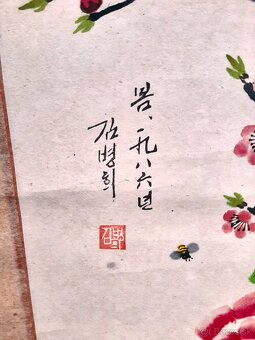 봄, 一九八六년
김병희